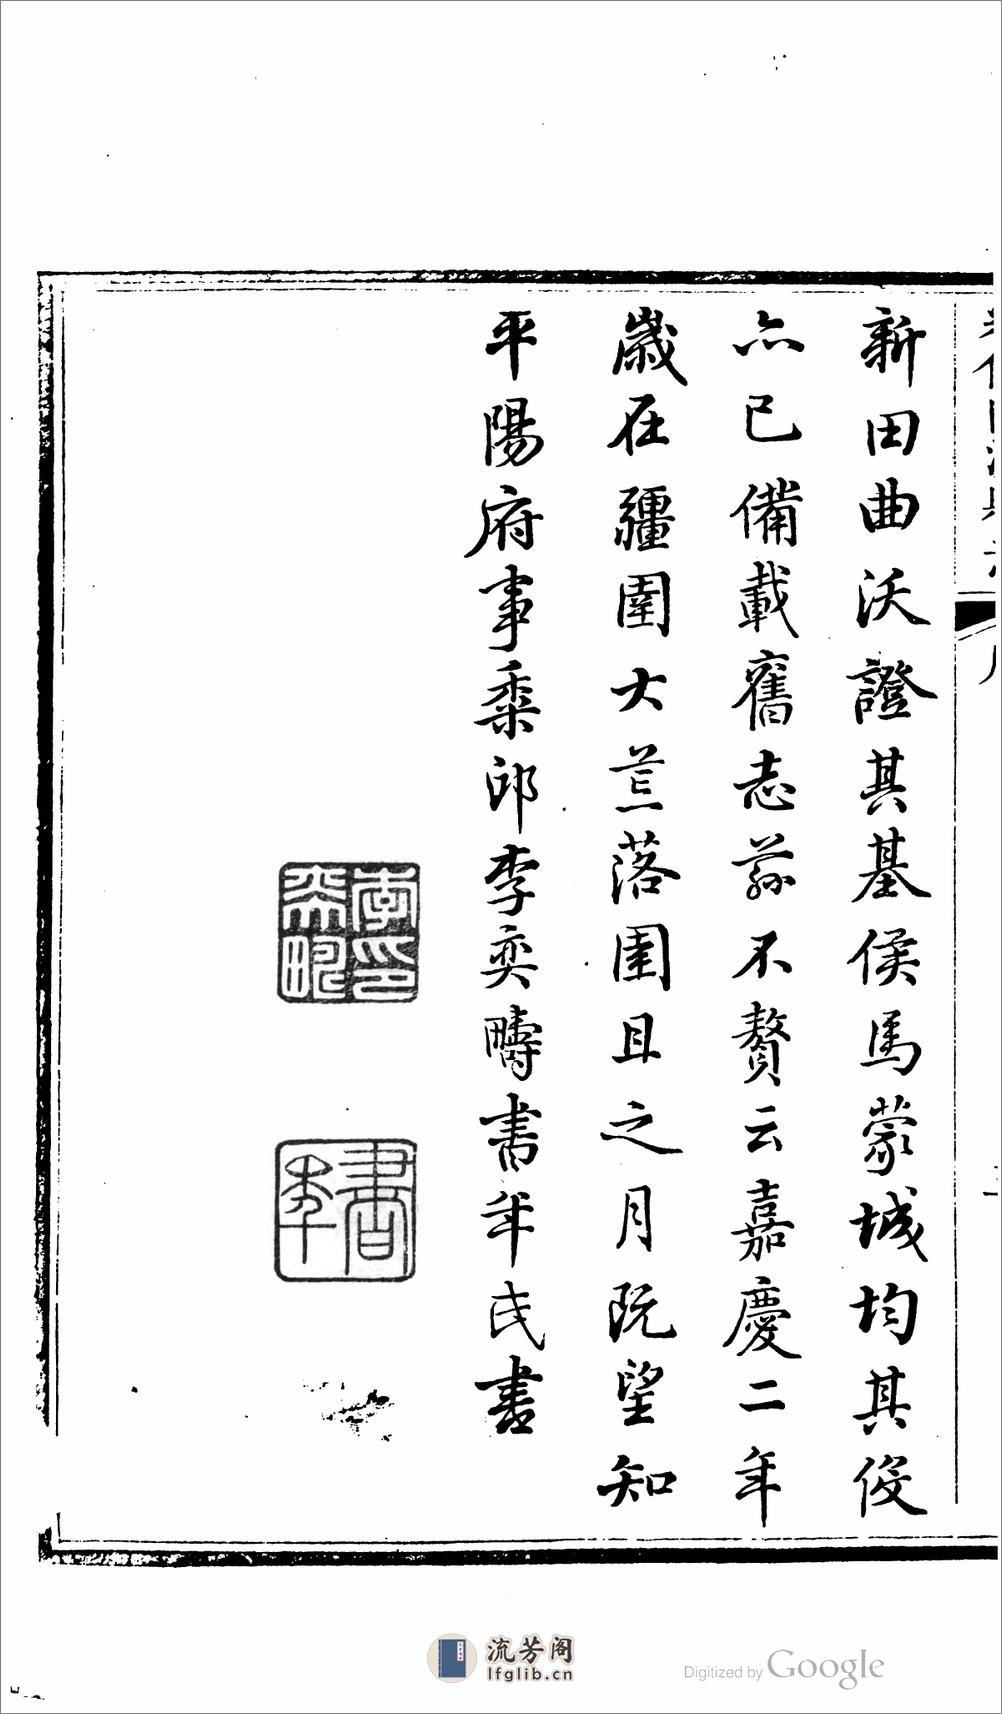 新田曲沃證其基侯馬蒙城均其後
亦已備載舊志茲不贅云嘉慶二年
歲在疆圉大荒落圉且之月既望知
平陽府事黍邱李奕疇書年氏書
李奕疇印
書年
流芳阁
lfglib.cn
Digitized by Google